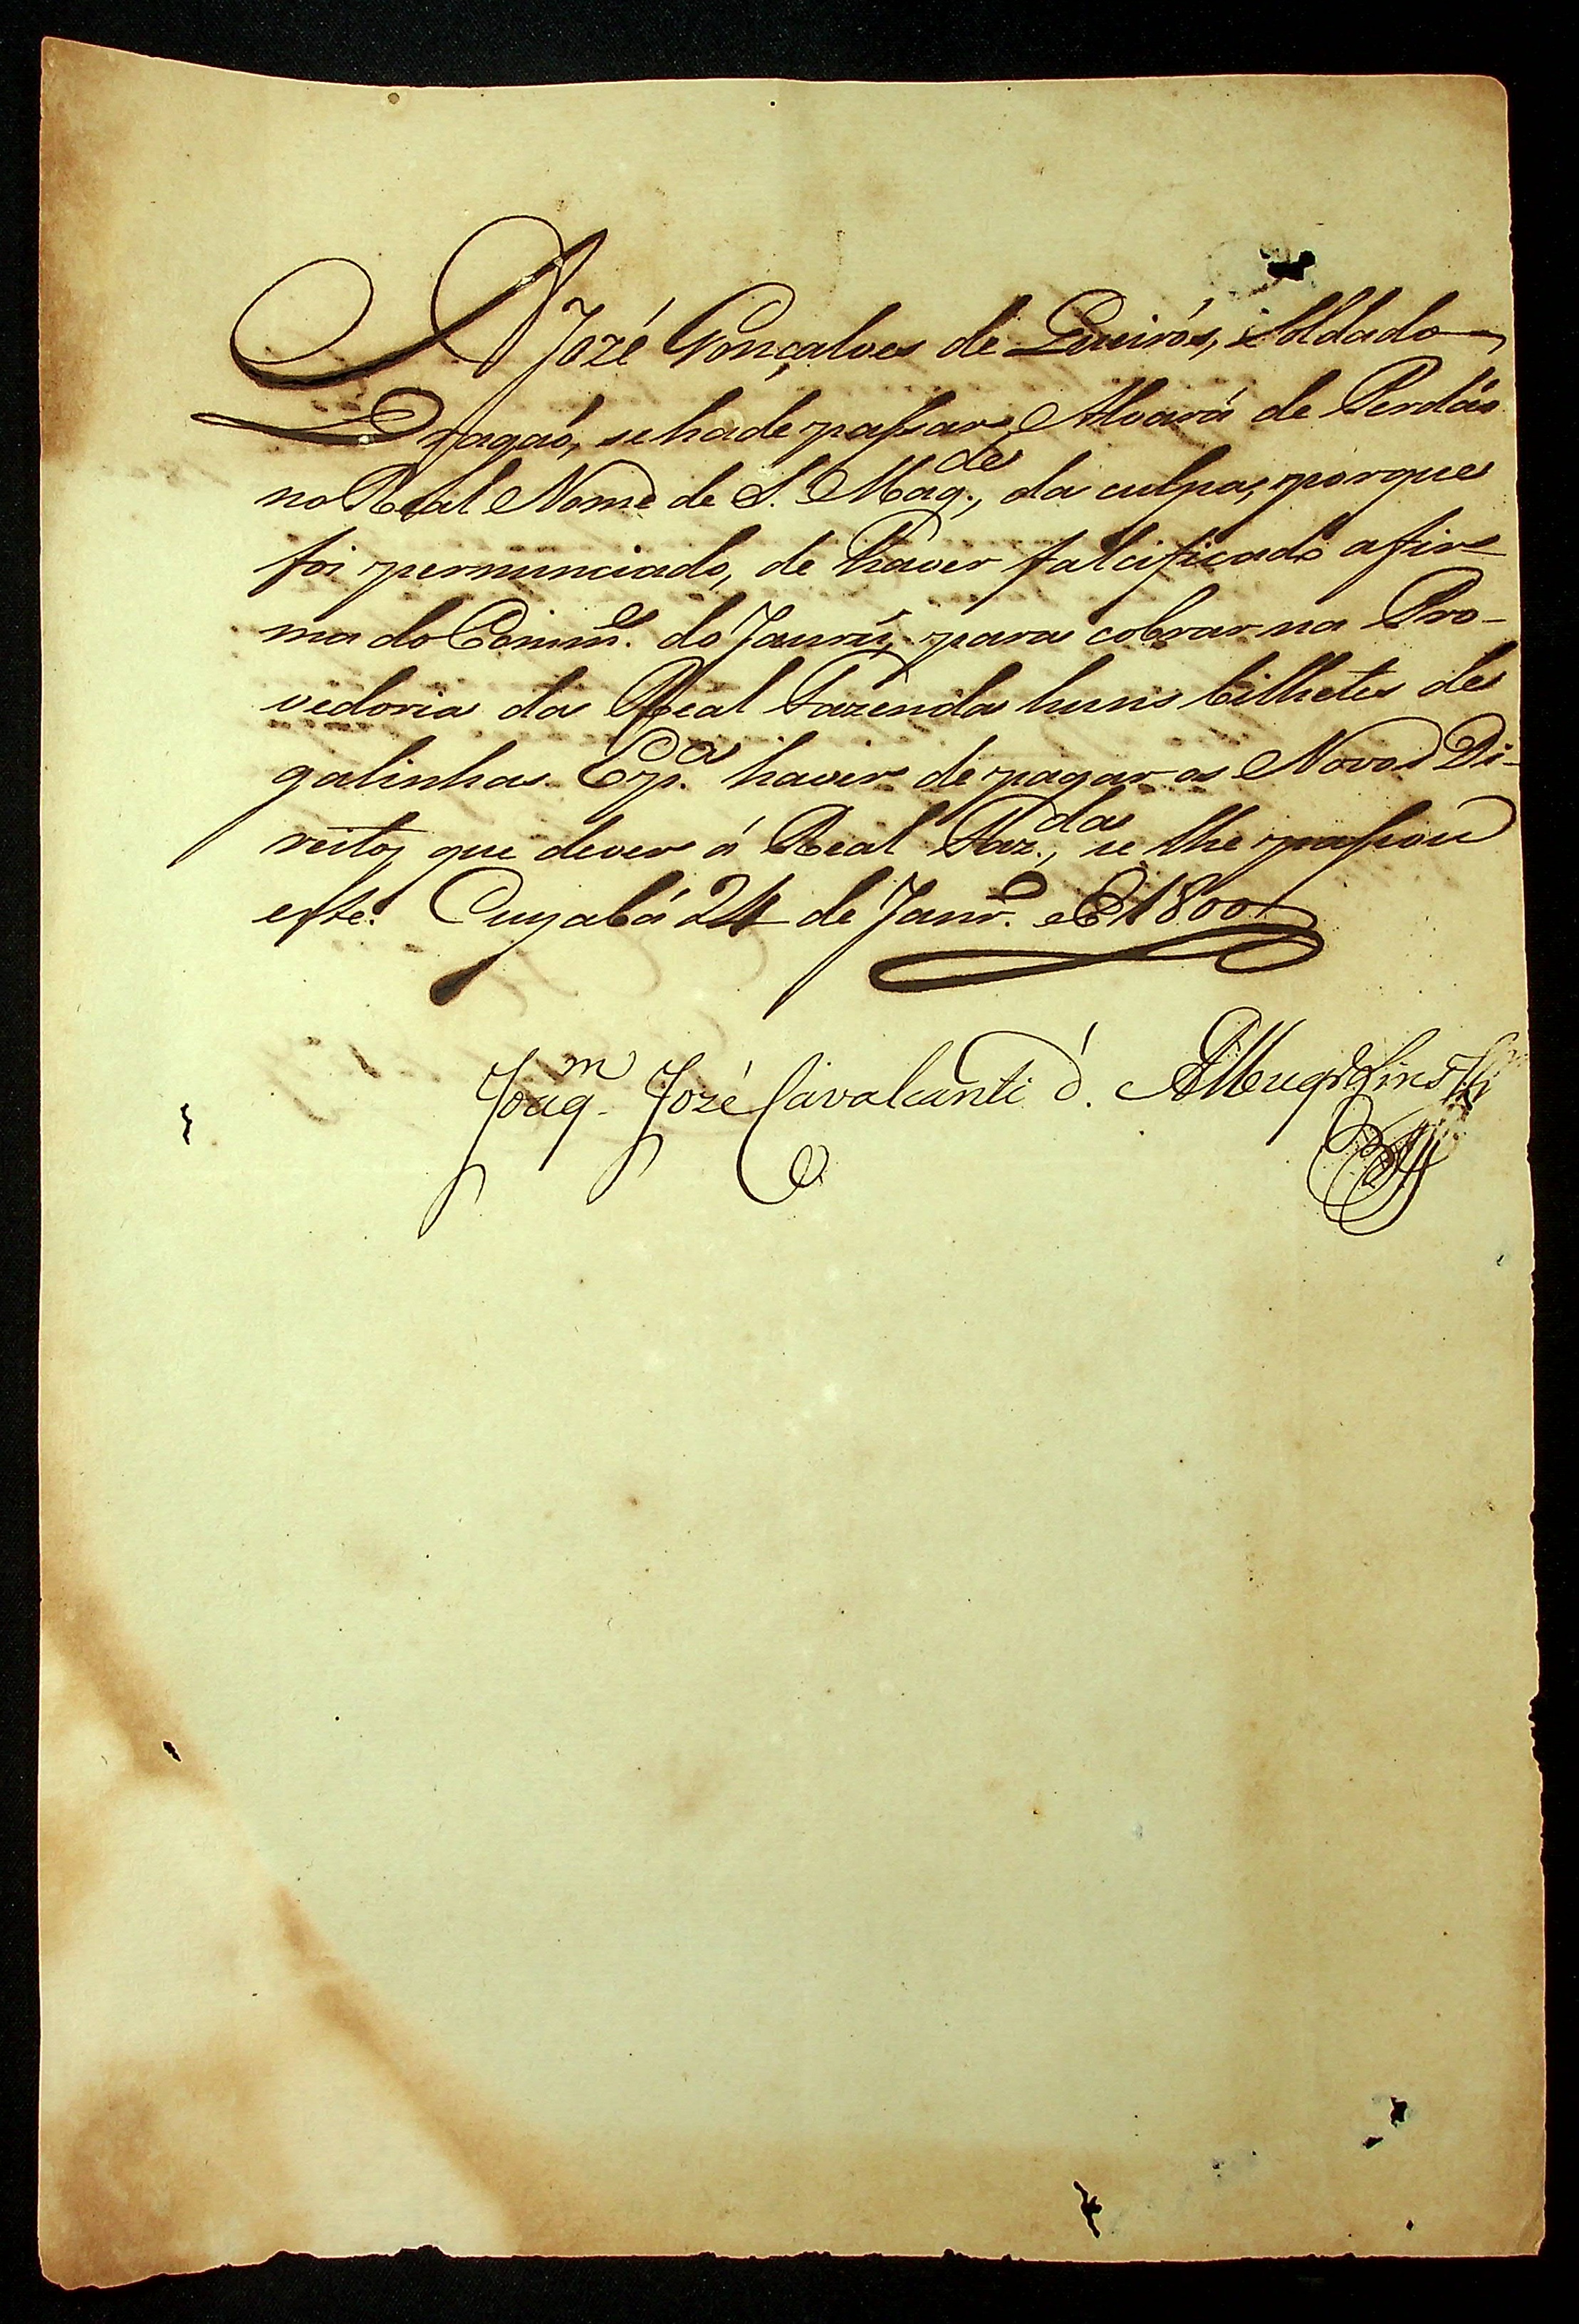 A Jozé Gonçalves de Queirós, Soldado
Dragaõ, se hade passar Alvará de Perdaõ
no Real Nome de S. Mag.de, da culpa, porque
foi pernunciado, de haver falcificado afir-
ma do Comm.e do Jaurú, para cobrar na Pro-
vedoria da Real Fazenda huns bilhetes de
galinhas. E p.a haver de pagar os Novos Di-
reitos que dever á Real Faz.da, se lhe passou
este. Cuyabá 24 de Janr.o de 1800
Joaq.m Jozé Cavalcanti d' Albuq.e Lins